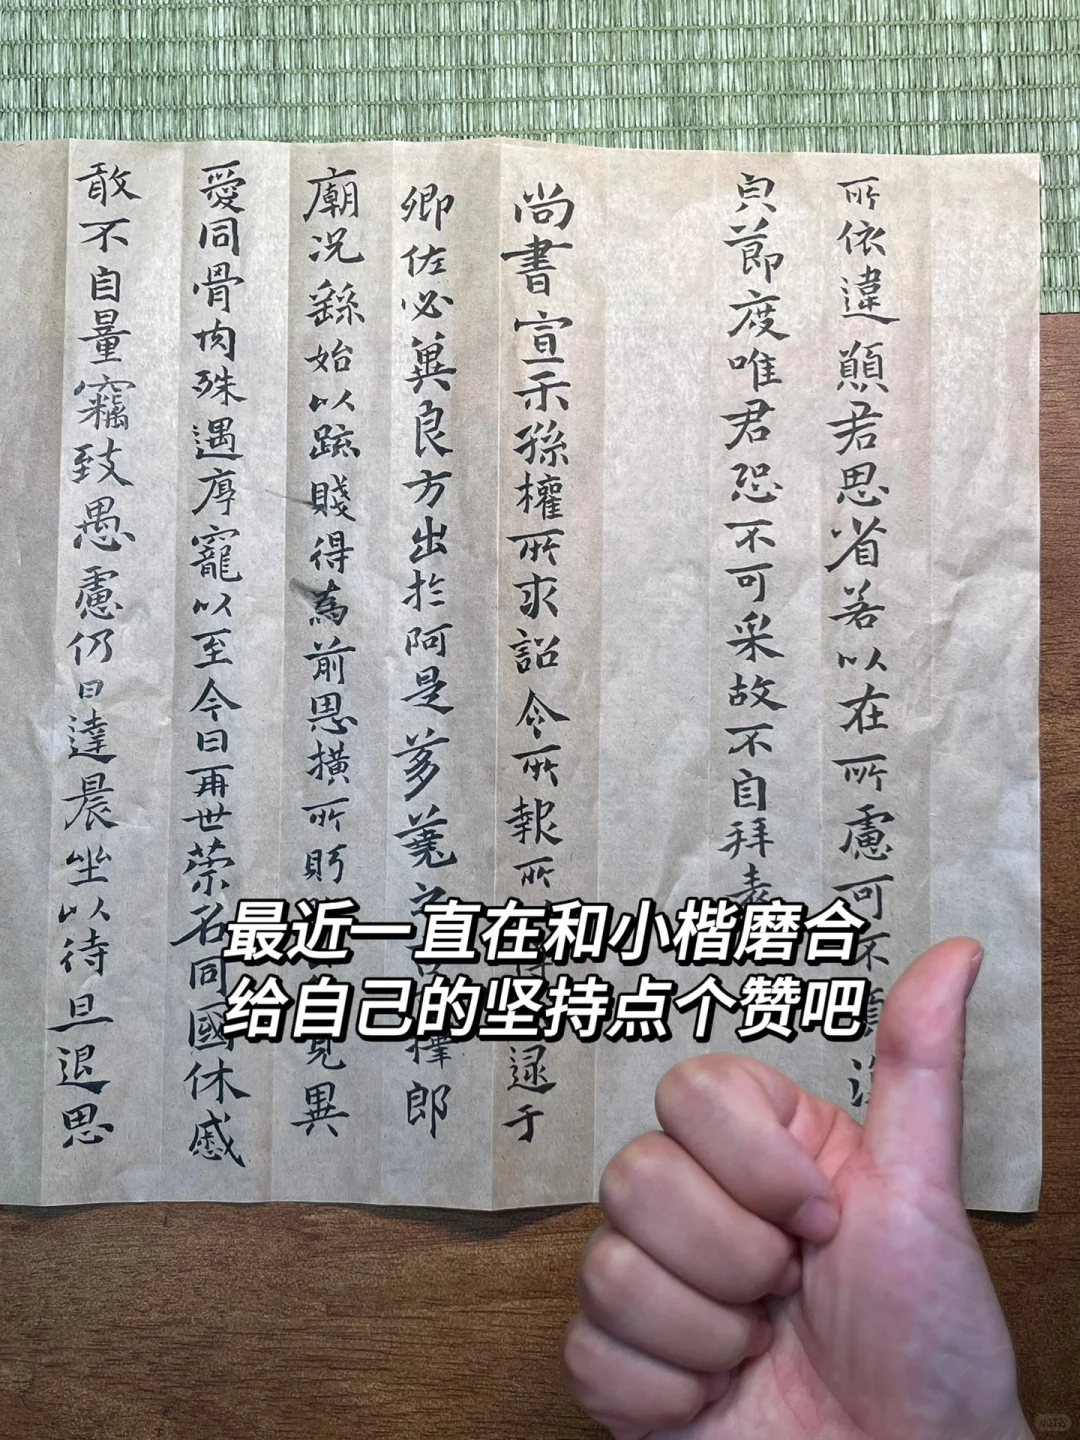 所依違願君思省若以在所慮可不須
貞節度唯君恐不可采故不自拜表
尚書宣示孫權所求詔令所報所逮于
卿佐必冀良方出於阿是芻蕘之言擇郎
廟況繇始以疏賤得為前恩橫所盻見異
愛同骨肉殊遇厚寵以至今日再世榮名同國休慼
敢不自量竊致愚慮仍日達晨坐以待旦退思
最近一直在和小楷磨合
给自己的坚持点个赞吧
小红书